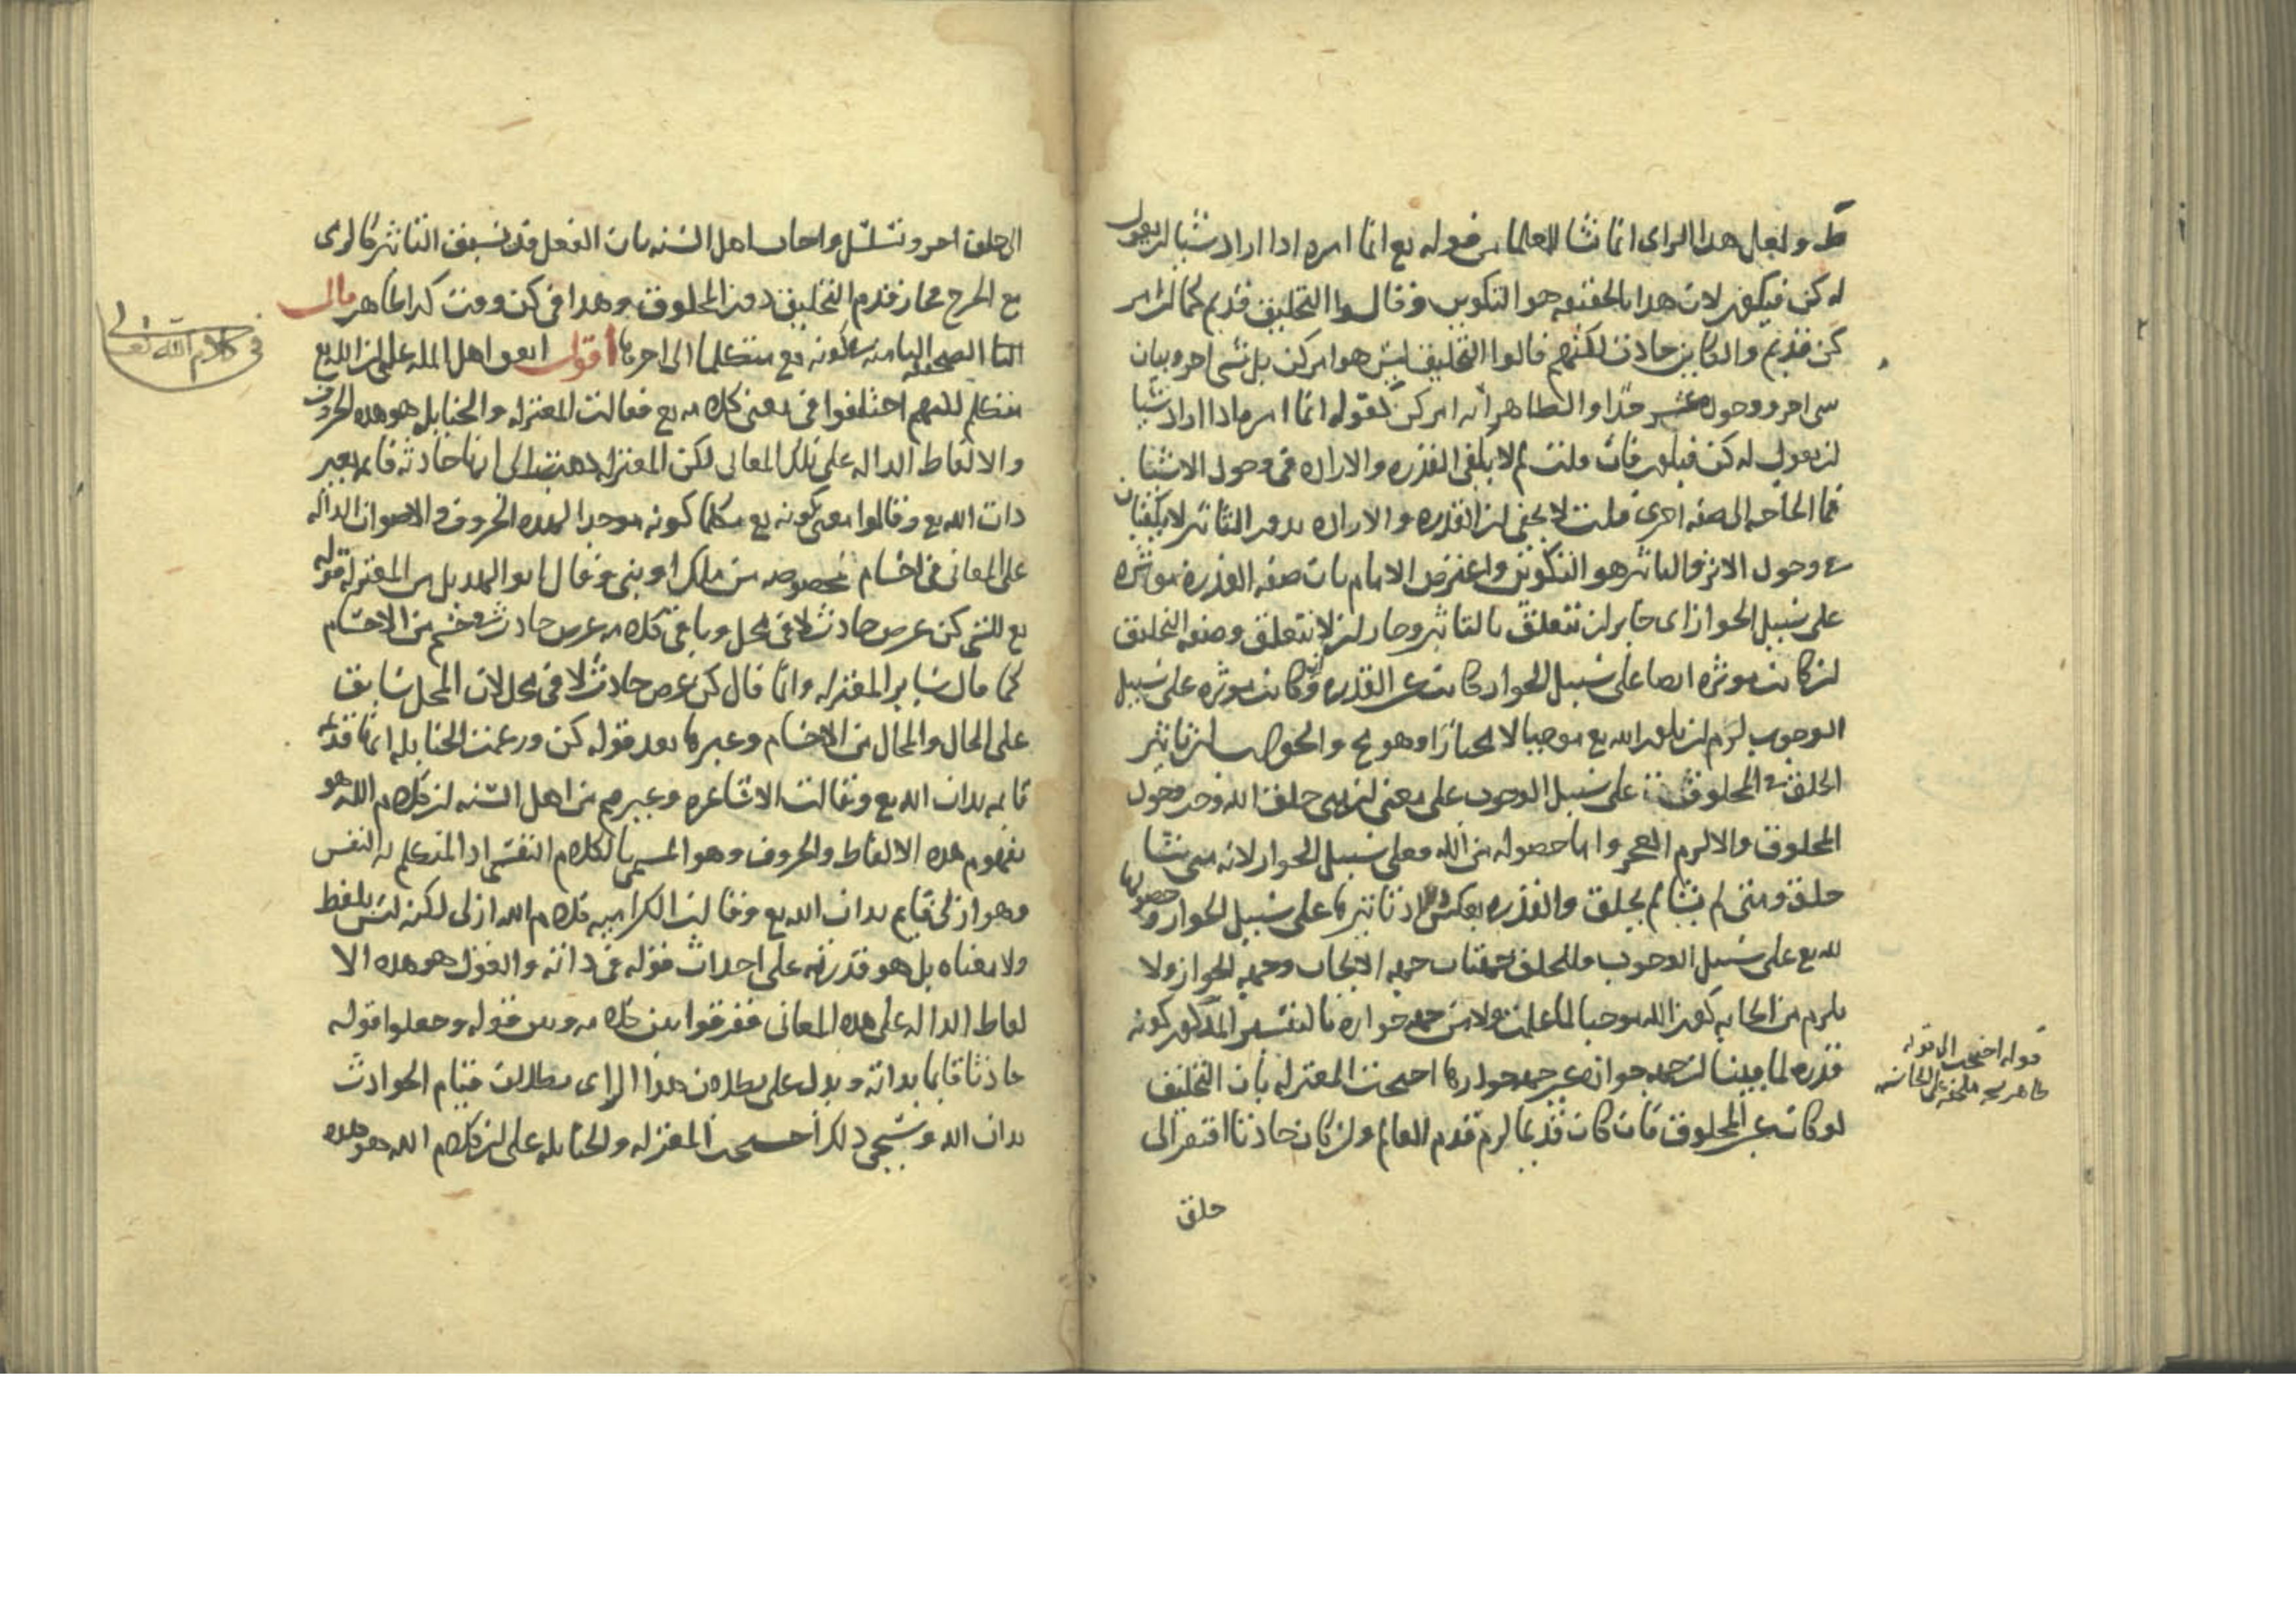 ولعل هذا الراى انما نشا للعلما من قوله تع انما امره اذا اراد شيا ان يقول
له كن فيكون لان هذا بالحقيقه هو التكوين وقالوا التخليق قديم كما ان امر
كن قديم والكاين حادث لكنهم قالوا التخليق ليس هو امر كن بل شى اخر وبيان
شى اخر ووجوده عسر جدا والظاهر انه امر كن لقوله انما امره اذا اراد شيا
ان يقول له كن فيكون فان قلت لم لا يكفى القدره والاراده فى وجود الاشيا
فما الحاجه الى صفه اخرى قلت لا يخفى ان القدره والاراده بدون التاثير لا يكفيان
فى وجود الاثر والتاثير هو التكوين واعترض الامام بان صفه القدره موثره
على سبيل الجواز اى جايز ان تتعلق بالتاثير وجاز ان لا تتعلق وصفه التخليق
ان كانت موثره ايضا على سبيل الجواز كانت عين القدره وان كانت موثره على سبيل
الوجوب لزم ان يكون الله تع موجبا لا مختارا وهو مح والجواب ان تاثير
الخلق فى المخلوق على سبيل الوجوب على معنى ان متى خلق الله وجب وجود
المخلوق والا لزم العجز واما حصوله من الله فعلى سبيل الجواز لانه متى شا
خلق ومتى لم يشا لم يخلق والقدره بعكس هذا اذ تاثيرها على سبيل الجواز وحصولها
لله تع على سبيل الوجوب فللخلق جهتان جهه الايجاب وجهه الجواز ولا
يلزم من ايجابه كون الله موجبا لما علمت ولا من جهه جوازه بالتفسير المذكور كونه
قدره لما بينا ان جهه جوازه غير جهه جوازها احتجت المعتزله بان التخليق
لو كان غير المخلوق فان كان قديما لزم قدم العالم وان كان حادثا افتقر الى
خلق
قوله احتجت الى قوله
الى خلق اخر وتسلسل واجاب اهل السنه بان الفعل قد يسبق التاثير كالرمى
مع الجرح فجاز قدم التخليق دون المخلوق وهذا فى كن وقت كذا ظاهر قال
الصحيفه الثامنه فى كونه تع متكلما الى اخرها اقول اتفق اهل المله على ان الله تع
متكلم لكنهم اختلفوا فى معنى كلامه تع فقالت المعتزله والحنابله هو هذه الحروف
والالفاظ الداله على تلك المعانى لكن المعتزله ذهبت الى انها حادثه قايمه بغير
ذات الله تع وقالوا معنى كونه تع متكلما كونه موجدا لهذه الحروف والاصوات الداله
على المعانى فى اجسام مخصوصه من ملك او نبى وقال ابو الهذيل من المعتزله قوله
تع للشى كن عرض حادث لا فى محل وباقى كلامه عرض حادث فى جسم من الاجسام
كما قال ساير المعتزله وانما قال كن عرض حادث لا فى محل لان المحل سابق
على الحال والمحال من الاجسام وغيرها بعد قوله كن وزعمت الحنابله انها قديمه
قايمه بذات الله تع وقالت الاشاعره وغيرهم من اهل السنه ان كلام الله هو
مفهوم هذه الالفاظ والحروف وهو المسمى بالكلام النفسى اذ المتكلم به النفس
وهو ازلى قايم بذات الله تع وقالت الكراميه كلام الله ازلى لكنه ليس بلفظ
ولا معناه بل هو قدرته على احداث قوله فى ذاته والقول هو هذه الا
لفاظ الداله على هذه المعانى ففرقوا بين كلامه وبين قوله وجعلوا قوله
حادثا قايما بذاته ويدل على بطلان هذا الراى بطلان قيام الحوادث
بذات الله وسيجى ذلك احتجت المعتزله والحنابله على ان كلام الله هو هذه
فى كلام الله تعالى